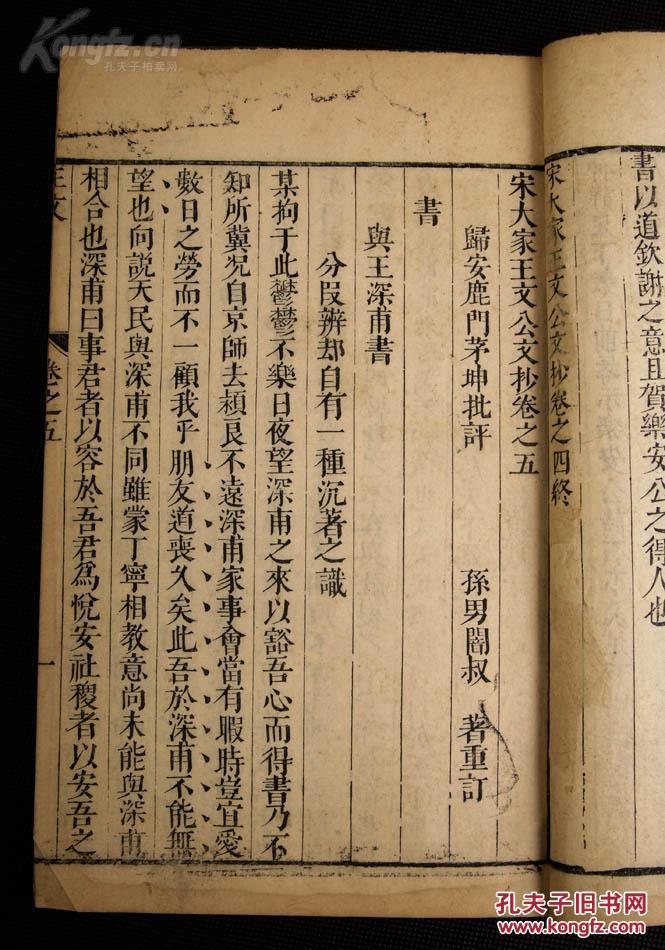 書以道欽謝之意且賀樂安公之得人也
宋大家王文公文抄卷之四終
宋大家王文公文抄卷之五
歸安鹿門茅坤批評 孫男闇叔 著重訂
書
與王深甫書
分段辨却自有一種沉著之識
某拘于此鬱鬱不樂日夜望深甫之來以豁吾心而得書乃不
知所冀况自京師去潁良不遠深甫家事會當有暇時豈宜愛
數日之勞而不一顧我乎朋友道喪久矣此吾於深甫不能無
望也向說天民與深甫不同雖蒙丁寧相教意尚未能與深甫
相合也深甫曰事君者以容於吾君爲悅安社稷者以安吾之
王文 卷之五 一
Kongfz.cn
孔夫子拍卖网
孔夫子旧书网
www.kongfz.com